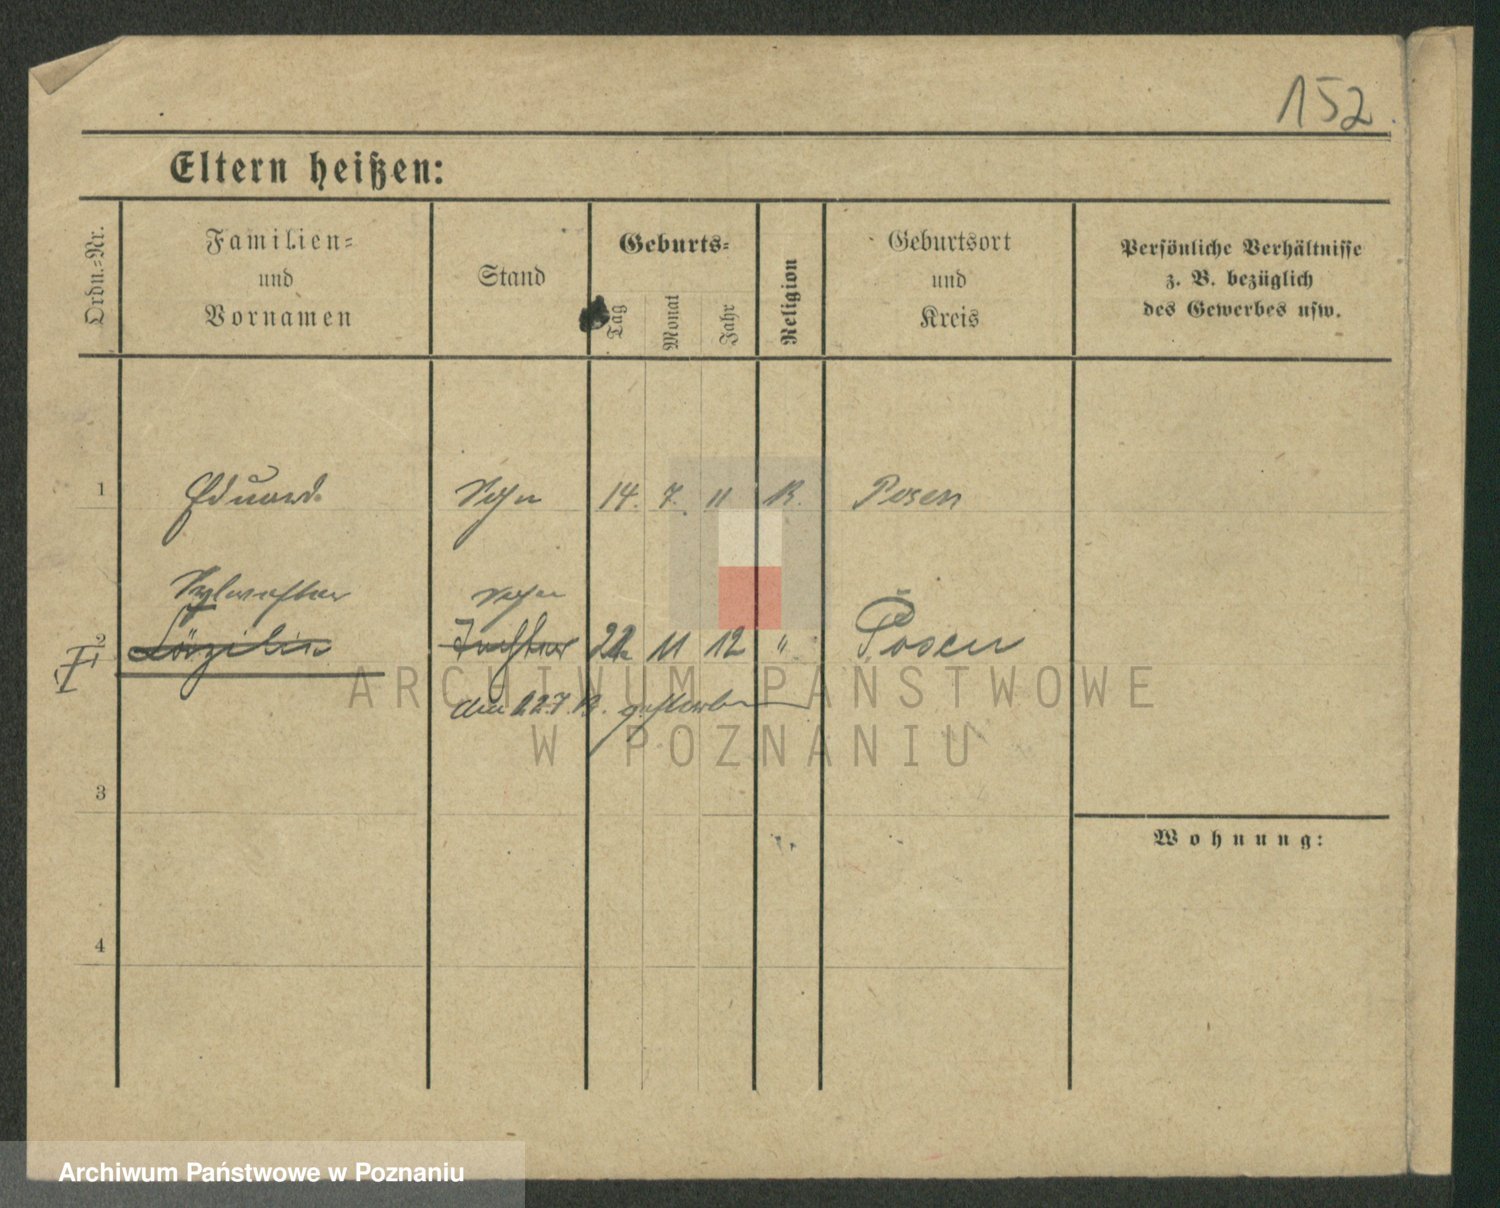 152.
Eltern heißen:
Ordn.-Nr.
Familien-
und
Vornamen
Stand
Geburts-
Tag
Monat
Jahr
Religion
Geburtsort
und
Kreis
Persönliche Verhältnisse
z. B. bezüglich
des Gewerbes usw.
1 Eduard. Sohn 14. 7. 11 K. Posen
Sylvester Sohn
2 Cäzilie Tochter 22 11 12 " Posen
gestorben
ARCHIWUM PAŃSTWOWE
W POZNANIU
3
Wohnung:
4
Archiwum Państwowe w Poznaniu